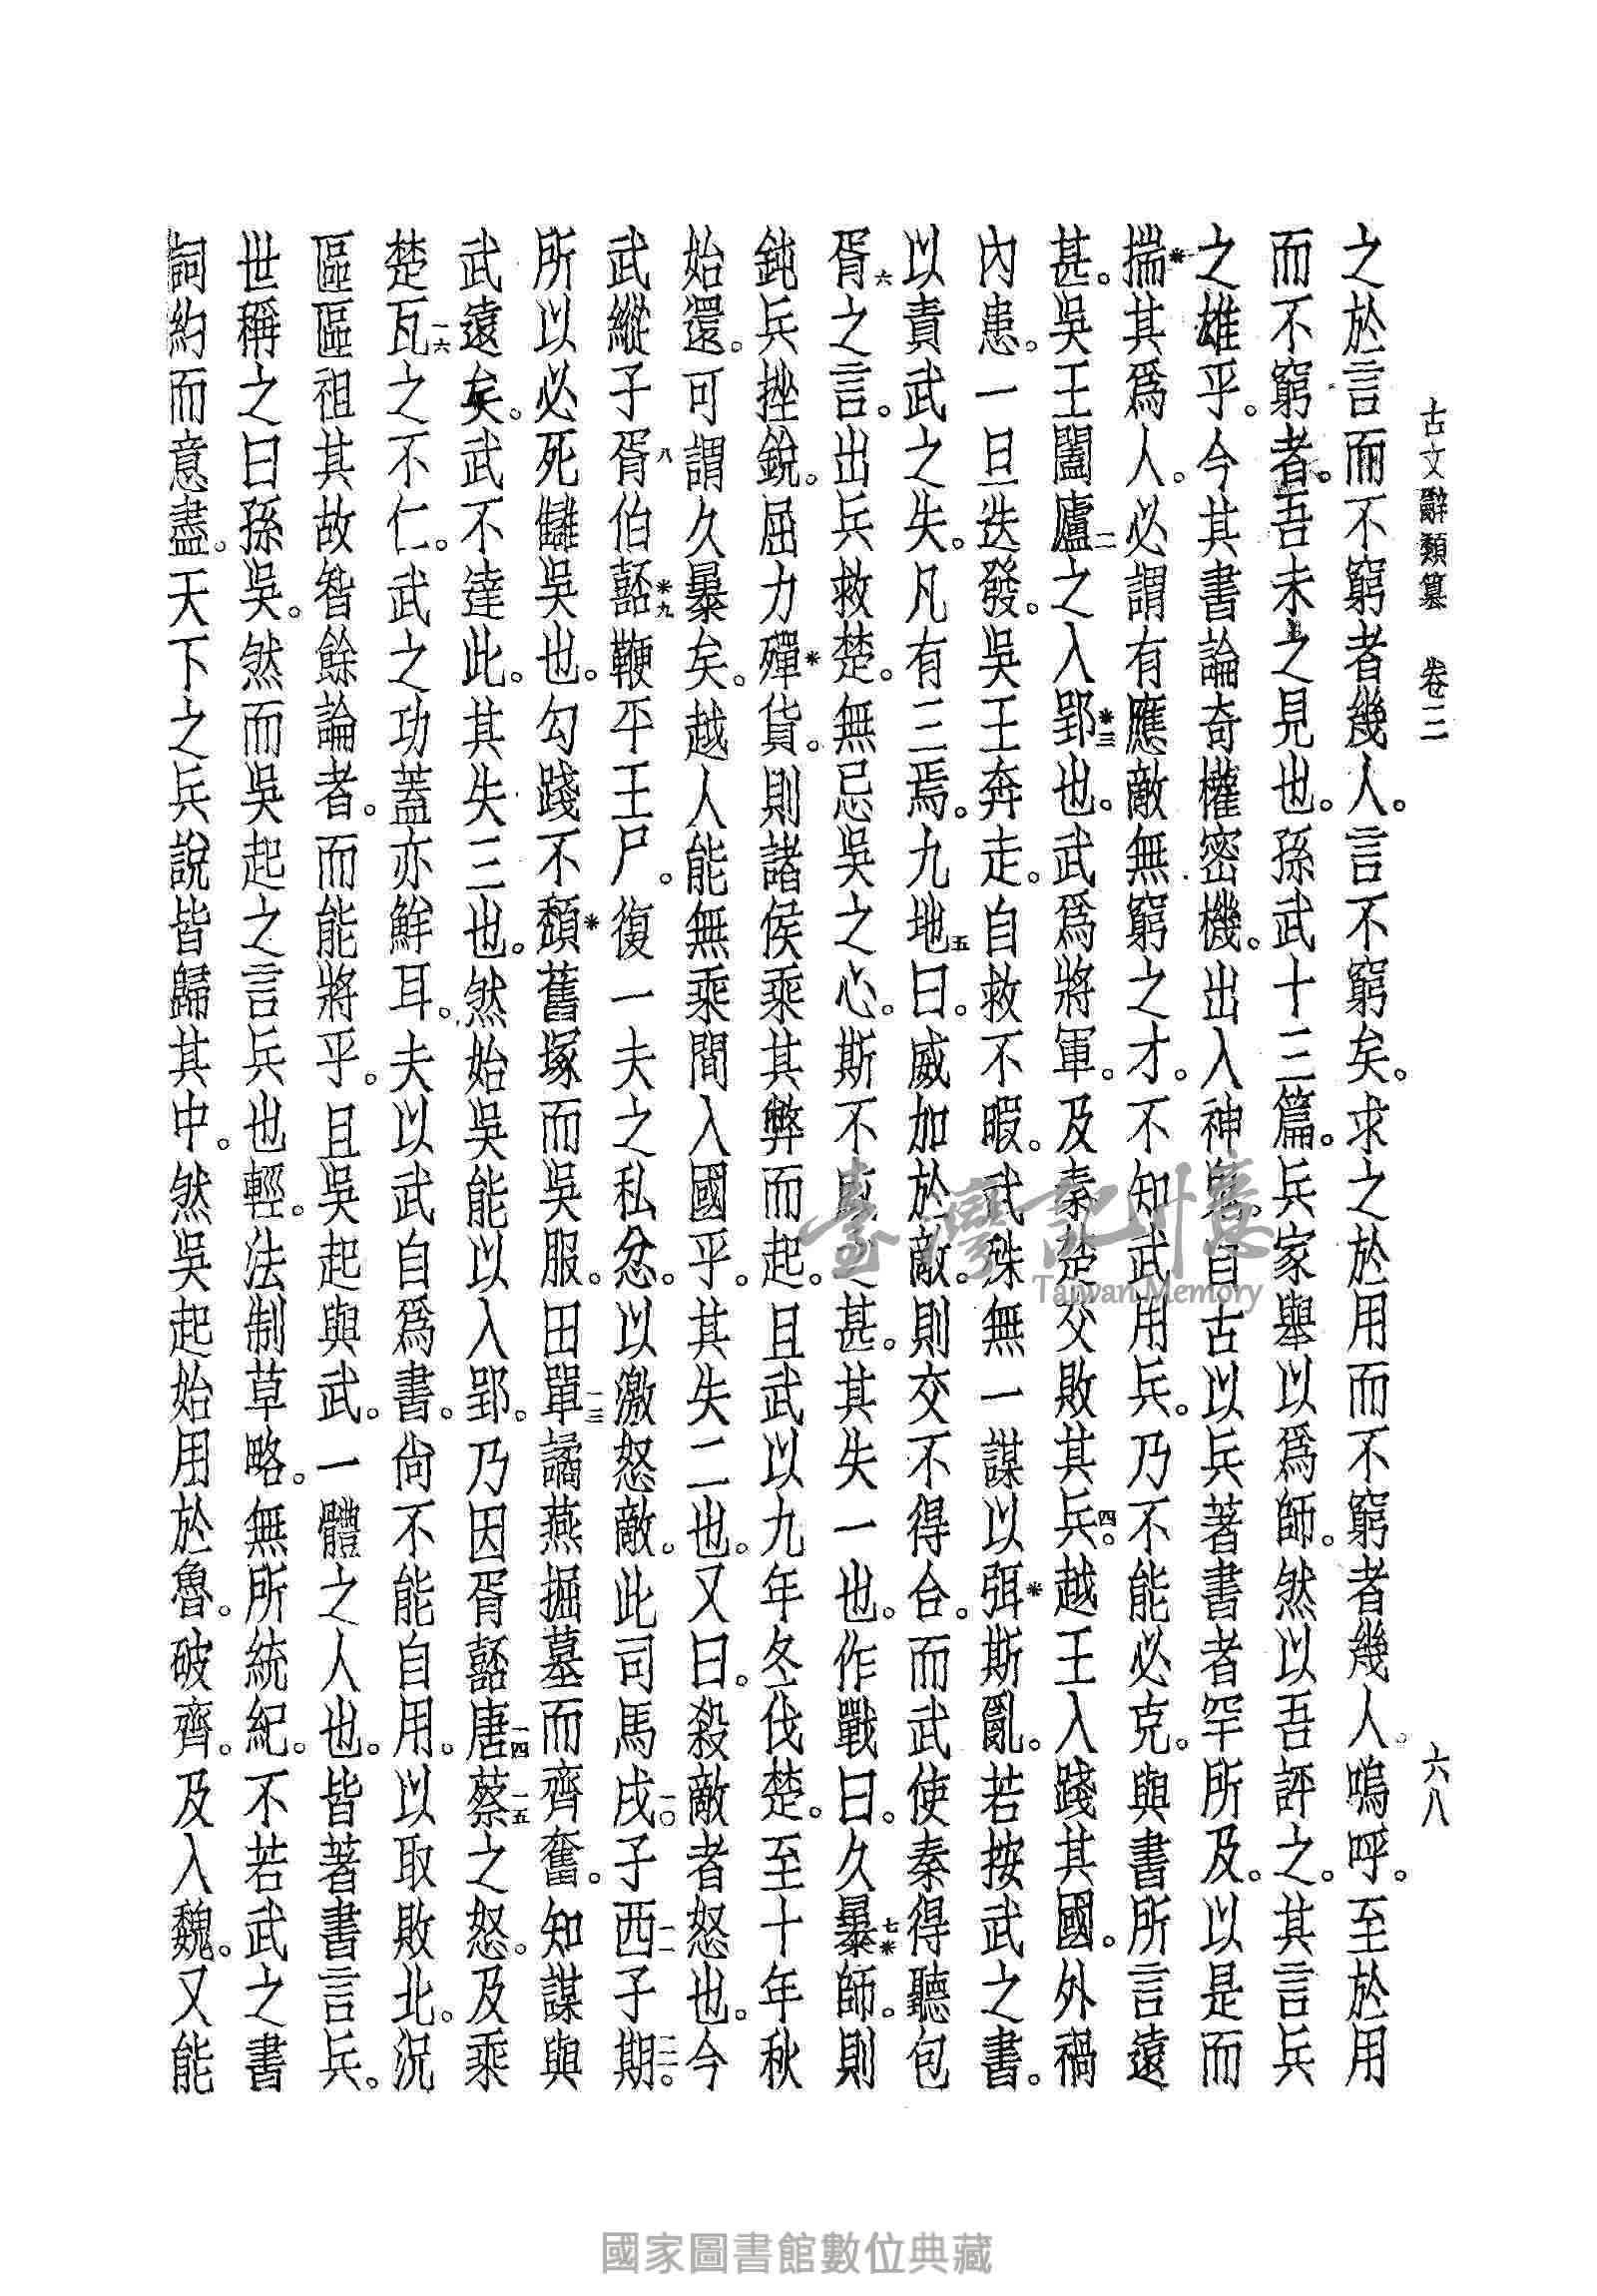 古文辭類纂　卷三　六八
之於言而不窮者幾人。言不窮矣。求之於用而不窮者幾人。嗚呼。至於用
而不窮者。吾未之見也。孫武十三篇。兵家舉以爲師。然以吾評之。其言兵
之雄乎。今其書論奇權密機。出入神鬼。自古以兵著書者罕所及。以是而
揣*其爲人。必謂有應敵無窮之才。不知武用兵。乃不能必克。與書所言遠
甚。吳王闔廬二之入郢*三也。武爲將軍。及秦楚交敗其兵四。越王入踐其國。外禍
內患。一旦迭發。吳王奔走。自救不暇。武殊無一謀以弭*斯亂。若按武之書。
以責武之失。凡有三焉。九地五曰。威加於敵。則交不得合。而武使秦得聽包
胥六之言。出兵救楚。無忌吳之心。斯不甚。其失一也。作戰曰。久暴七*師。則
鈍兵挫銳。屈力殫*貨。則諸侯乘其弊而起。且武以九年冬伐楚。至十年秋
始還。可謂久暴矣。越人能無乘間入國乎。其失二也。又曰。殺敵者怒也。今
武縱子胥八伯嚭*九鞭平王尸。復一夫之私忿。以激怒敵。此司馬戌一〇子西一一子期一二。
所以必死讎吳也。勾踐不頹*舊塚而吳服。田單一三譎燕掘墓而齊奮。知謀與
武遠矣。武不達此。其失三也。然始吳能以入郢。乃因胥嚭唐一四蔡一五之怒。及乘
楚瓦一六之不仁。武之功蓋亦鮮耳。夫以武自爲書。尙不能自用。以取敗北。況
區區祖其故智餘論者。而能將乎。且吳起與武。一體之人也。皆著書言兵。
世稱之曰孫吳。然而吳起之言兵也輕。法制草略。無所統紀。不若武之書
詞約而意盡。天下之兵說皆歸其中。然吳起始用於魯。破齊。及入魏。又能
臺灣記憶
Taiwan Memory
國家圖書館數位典藏